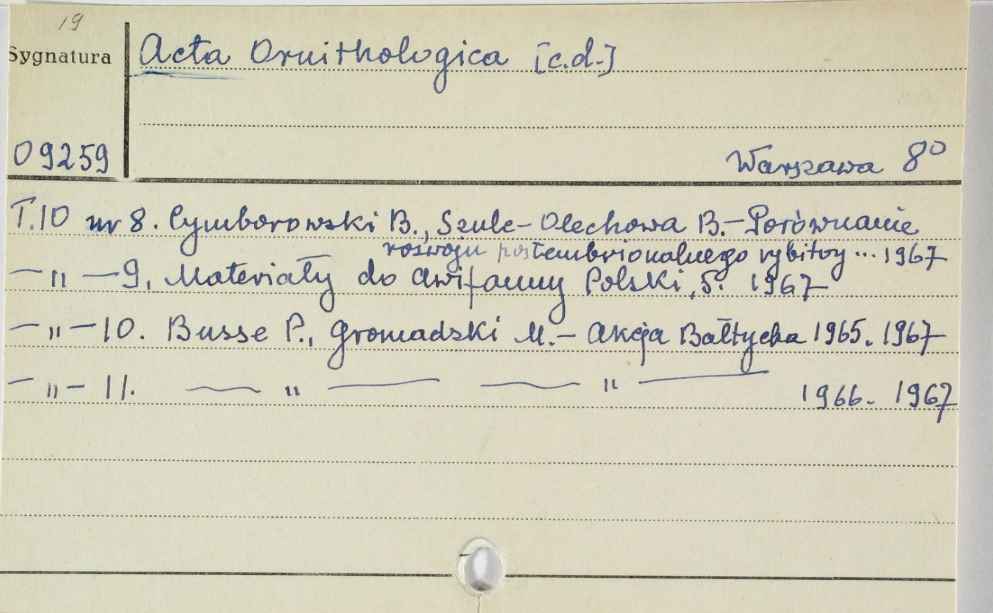 19
Sygnatura
Acta Ornithologica [c.d.]
09259
Warszawa 8°
T.10 nr 8. Cymborowski B., Szulc-Olechowa B. - Porównanie
rozwoju postembrionalnego rybitwy ... 1967
— " — 9. Materiały do awifauny Polski, 5. 1967
— " — 10. Busse P., Gromadzki M. - Akcja Bałtycka 1965. 1967
— " — 11. — " — — " — 1966. 1967